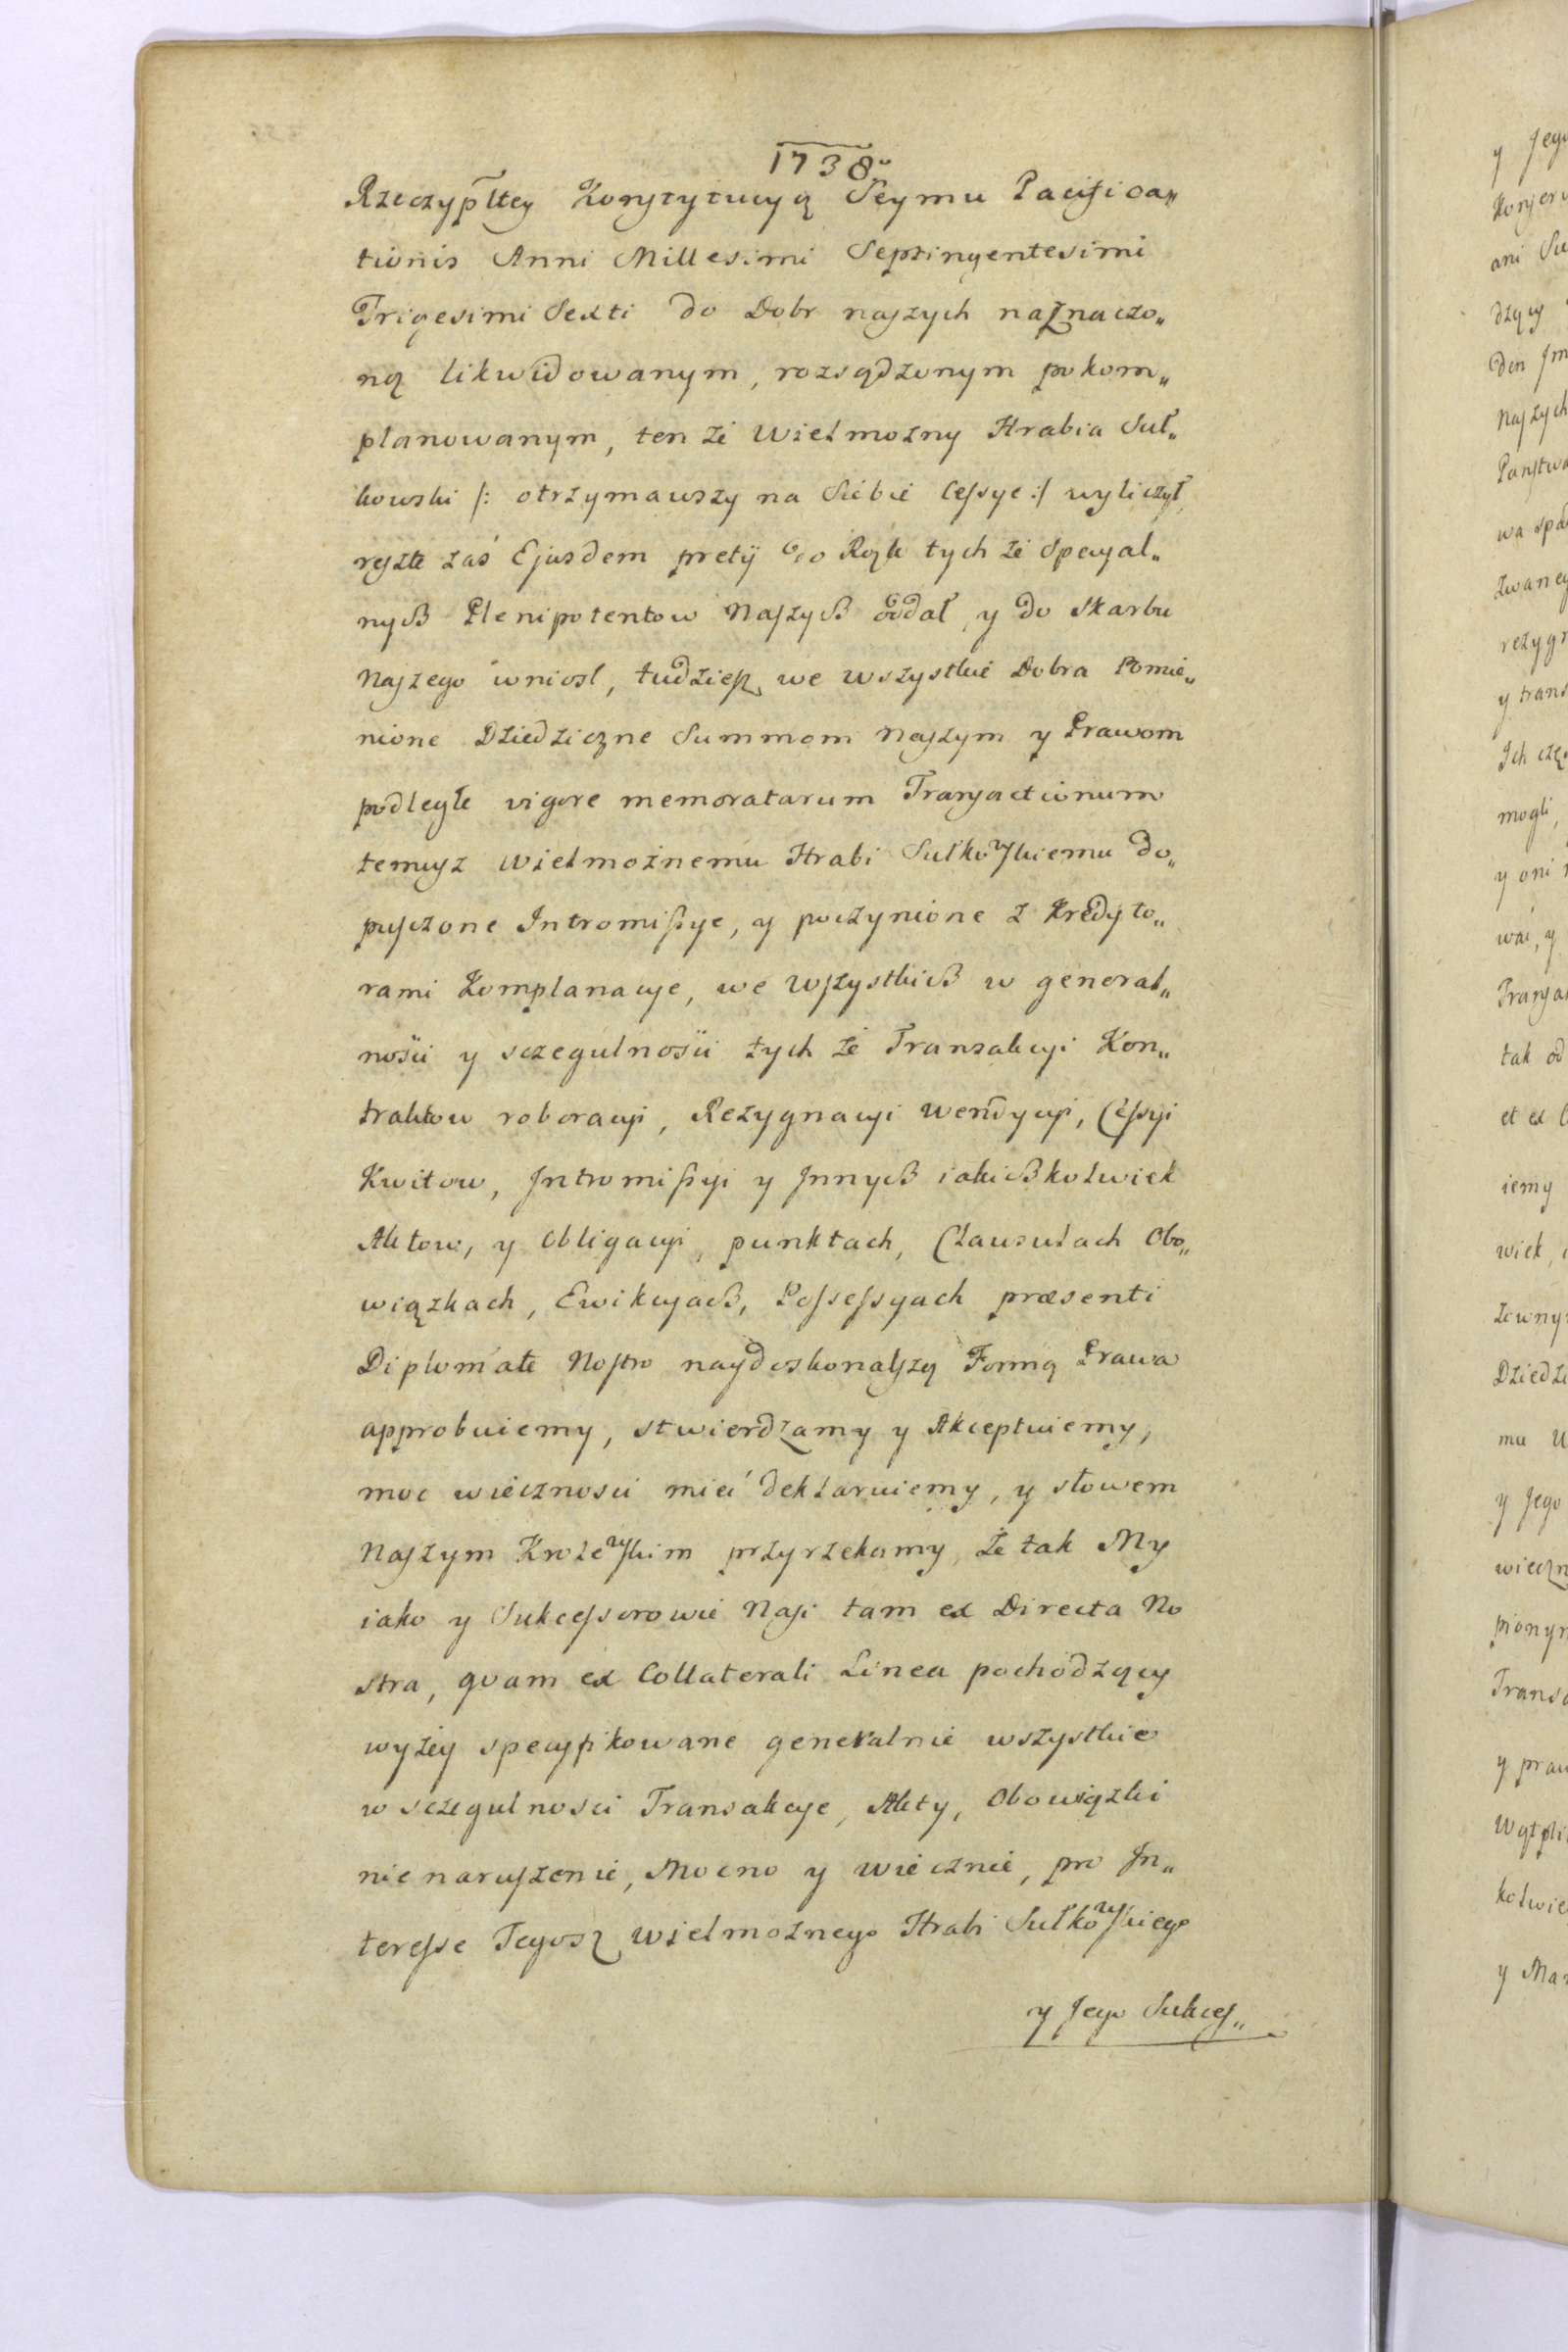 1738
Rzeczypltey Konstytucyą Seymu Pacifica„
tionis Anni Millesimi Septingentesimi
Trigesimi Sexti do Dobr naszych naznaczo„
ną likwidowanym, rozsądzonym pokom„
planowanym, ten że Wielmożny Hrabia Suł„
kowski /: otrzymawszy na Siebie Cessye :/ wyliczył,
resztę zaś Ejusdem pretij do Rąk tych że Specyal„
nych Plenipotentow Naszych oddał, y do Skarbu
Naszego wniosl, tudziesz we wszystkie Dobra Pomie„
nione Dziedziczne Summom Naszym y Prawom
podległe vigore memoratarum Transactionum
temusz Wielmożnemu Hrabi Sułkowskiemu do„
pusczone Intromissye, y poczynione z Kredyto„
rami Komplanacye, we wszystkich w general„
nosci y sczegulnosci tych że Transakcyi Kon„
traktow roboracyi, Rezygnacyi wendycyi, Cessyi
Kwitow, Intromissyi y Innych iakichkolwiek
Aktow, y Obligacyi, punktach, Clausulach Obo„
wiązkach, Ewikcyach, Possessyach præsenti
Diplomate Nostro naydoskonalszą Formą Prawa
approbuiemy, stwierdzamy y Akceptuiemy,
moc wiecznosci mieć deklaruiemy, y słowem
Naszym Krolewskim przyrzekamy, że tak My
iako y Sukcessorowie Nasi tam ex Directa No
stra, quam ex Collaterali Linea pochodzący
wyżey specyfikowane generalnie wszystkie
w sczegulnosci Transakcye, Akty, Obowiązki
nie naruszenie, Mocno y wiecznie, pro In„
teresse Tegosz Wielmożnego Hrabi Sułkowskiego
y Jego Sukces„